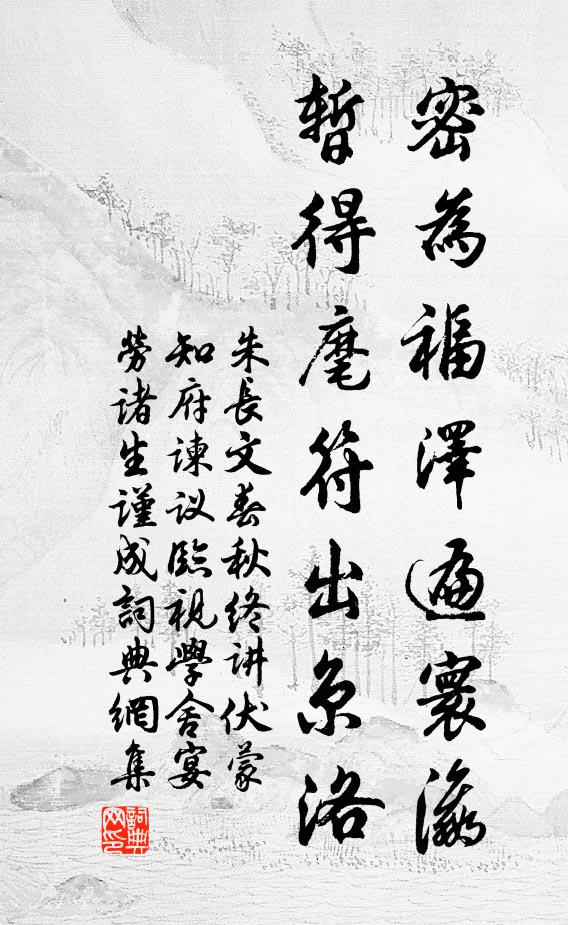 密為福澤遍寰瀛
暫得麾符出京洛
朱長文春秋终讲伏蒙
知府谏议臨視學舍宴
勞诸生谨成詞典網集
詞典
网印